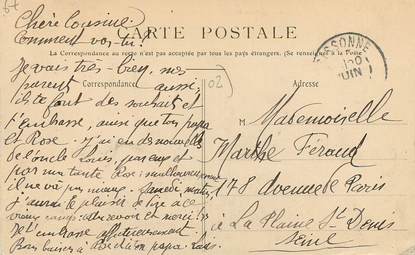 Chère Cousine
Comment vas-tu ?
CARTE POSTALE
La Correspondance au recto n'est pas acceptée par tous les pays étrangers. (Se renseigner à la Poste)
Je vais très-bien, mes
parents aussi,
Correspondance
te fait des souhaits et
t'embrasse, ainsi que ton papa
et Rose. j'ai eu des nouvelles
de l'oncle Louis, par eux et
par ma tante Rose : malheureusement
il ne va pas mieux. Samedi matin,
j'aurai le plaisir de lire
au revoir et merci
Je t'embrasse affectueusement
Bons baisers à papa Louis.
02
SSONNE
JUIN
Adresse
M Mademoiselle
Marthe Féraud
178 Avenue de Paris
à La Plaine St Denis
Seine